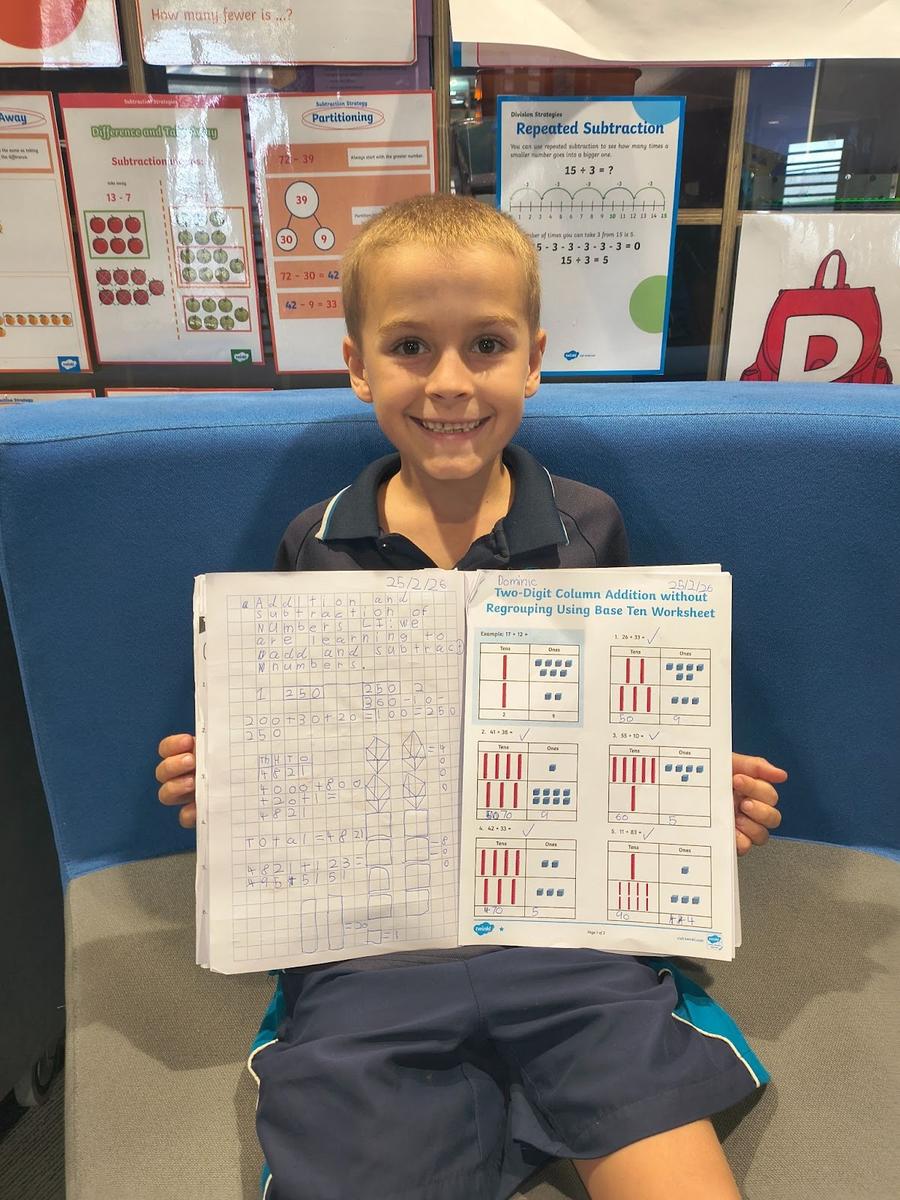 How many fewer is ...?
Away
Difference and Take Away
take away
13 - 7
Subtraction Strategy
Partitioning
72 - 39
Always start with the greater number.
39
30
9
72 - 30 = 42
42 - 9 = 33
Division Strategies
Repeated Subtraction
You can use repeated subtraction to see how many times a
smaller number goes into a bigger one.
15 ÷ 3 = ?
-3 -3 -3 -3 -3
1 2 3 4 5 6 7 8 9 10 11 12 13 14 15
number of times you can take 3 from 15 is 5.
5 - 3 - 3 - 3 - 3 - 3 = 0
15 ÷ 3 = 5
twinkl
25/2/26
Addition and
subtraction of
Numbers LI: we
are learning to
add and subtract
numbers.
1 250
250 2
360 - 10 -
200+30+20=100=250
250
Th H T O
4 8 2 1
4000+800
+20+1=
4821
Total=4821
4821+123=
495+5151
=4
=20
=1
Dominic
25/2/26
Two-Digit Column Addition without
Regrouping Using Base Ten Worksheet
Example: 17 + 12 =
Tens Ones
2 9
1. 26 + 33 =
Tens Ones
50 9
2. 41 + 38 =
Tens Ones
70 9
3. 55 + 10 =
Tens Ones
60 5
4. 42 + 33 =
Tens Ones
70 5
5. 11 + 83 =
Tens Ones
90 4
twinkl
Page 1 of 2
visit twinkl.com